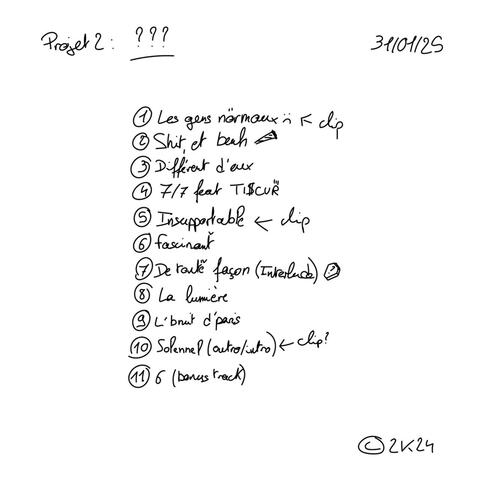 Projet 2 : ???
31/01/25
① Les gens närmaux :̈ ← clip
② Shit et beuh
③ Différent d'eux
④ 7/7 feat TI$CUR̈
⑤ Insupportable ← clip
⑥ fascinant
⑦ De toute façon (Interlude)
⑧ La lumière
⑨ L'bruit d'paris
⑩ Solennel (outro/intro) ← clip?
⑪ 6 (bonus track)
© 2K24